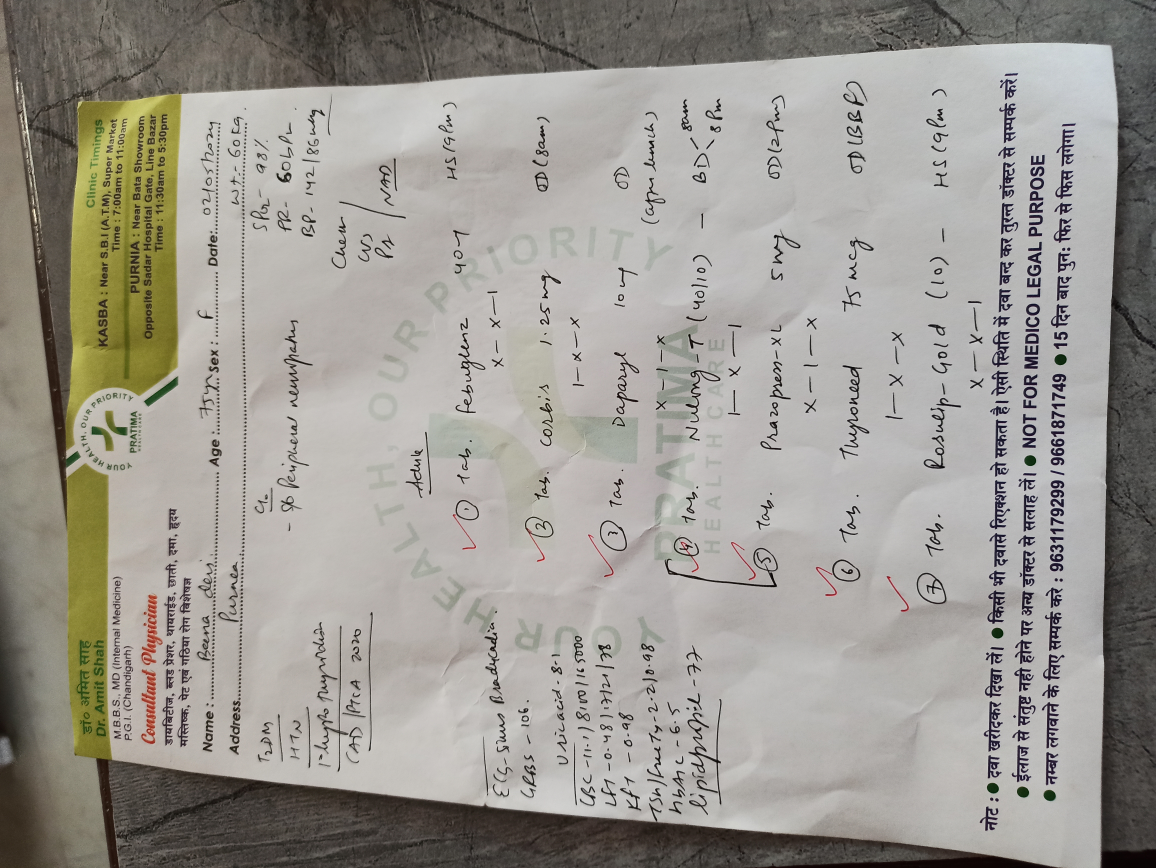 डा० अमित साह
Dr. Amit Shah
M.B.B.S., MD (Internal Medicine)
P.G.I. (Chandigarh)
Consultant Physician
डायबिटीज, ब्लड प्रेशर, थायराईड, छाती, दमा, हृदय
मस्तिष्क, पेट एवं गठिया रोग विशेषज्ञ
YOUR HEALTH, OUR PRIORITY
PRATIMA
Clinic Timings
KASBA : Near S.B.I (A.T.M), Super Market
Time : 7:00am to 11:00am
PURNIA : Near Bata Showroom
Opposite Sadar Hospital Gate, Line Bazar
Time : 11:30am to 5:30pm
Name : Beena devi Age : 75yr Sex : F Date: 02/05/2024
Address Purnea wt- 60kg.
T2DM
HTN
CAD/PTCA 2020
C/o
- Peripheral neuropathy
SPO2 - 98%
PR-
BP- 142/86
Chest
CVS
NAD
Advice
① Tab. Febuglenz 40 HS(9Pm)
x-x-1
Tab. Corbis 1.25mg OD(8am)
1-x-x
③ Tab. 10 OD
x-1-x (after lunch)
④ Tab. (40/10) - BD 8am
1-x-1 8Pm
⑤ Tab. Prazopress-XL 5mg OD(2Pm)
x-1-x
⑥ Tab. Thyroneed 75mcg OD(BBF)
1-x-x
⑦ Tab. Rosulip-Gold (10) - HS(9Pm)
x-x-1
ECG- Sinus Bradycardia.
GRBS - 106.
Uric acid - 8.1
CBC-11.1/8100/165000
KFT - 0.98
HbA1C - 6.5
lipid profile - 77
YOUR HEALTH, OUR PRIORITY
PRATIMA
HEALTHCARE
नोट : ● दवा खरीदकर दिखा लें। ● किसी भी दवासे रिएक्शन हो सकता है। ऐसी स्थिति में दवा बन्द कर तुरन्त डॉक्टर से सम्पर्क करें।
● ईलाज से संतुष्ट नहीं होने पर अन्य डॉक्टर से सलाह लें। ● NOT FOR MEDICO LEGAL PURPOSE
● नम्बर लगवाने के लिए सम्पर्क करे : 9631179299 / 9661871749 ● 15 दिन बाद पुन: फिर से फिस लगेगा।